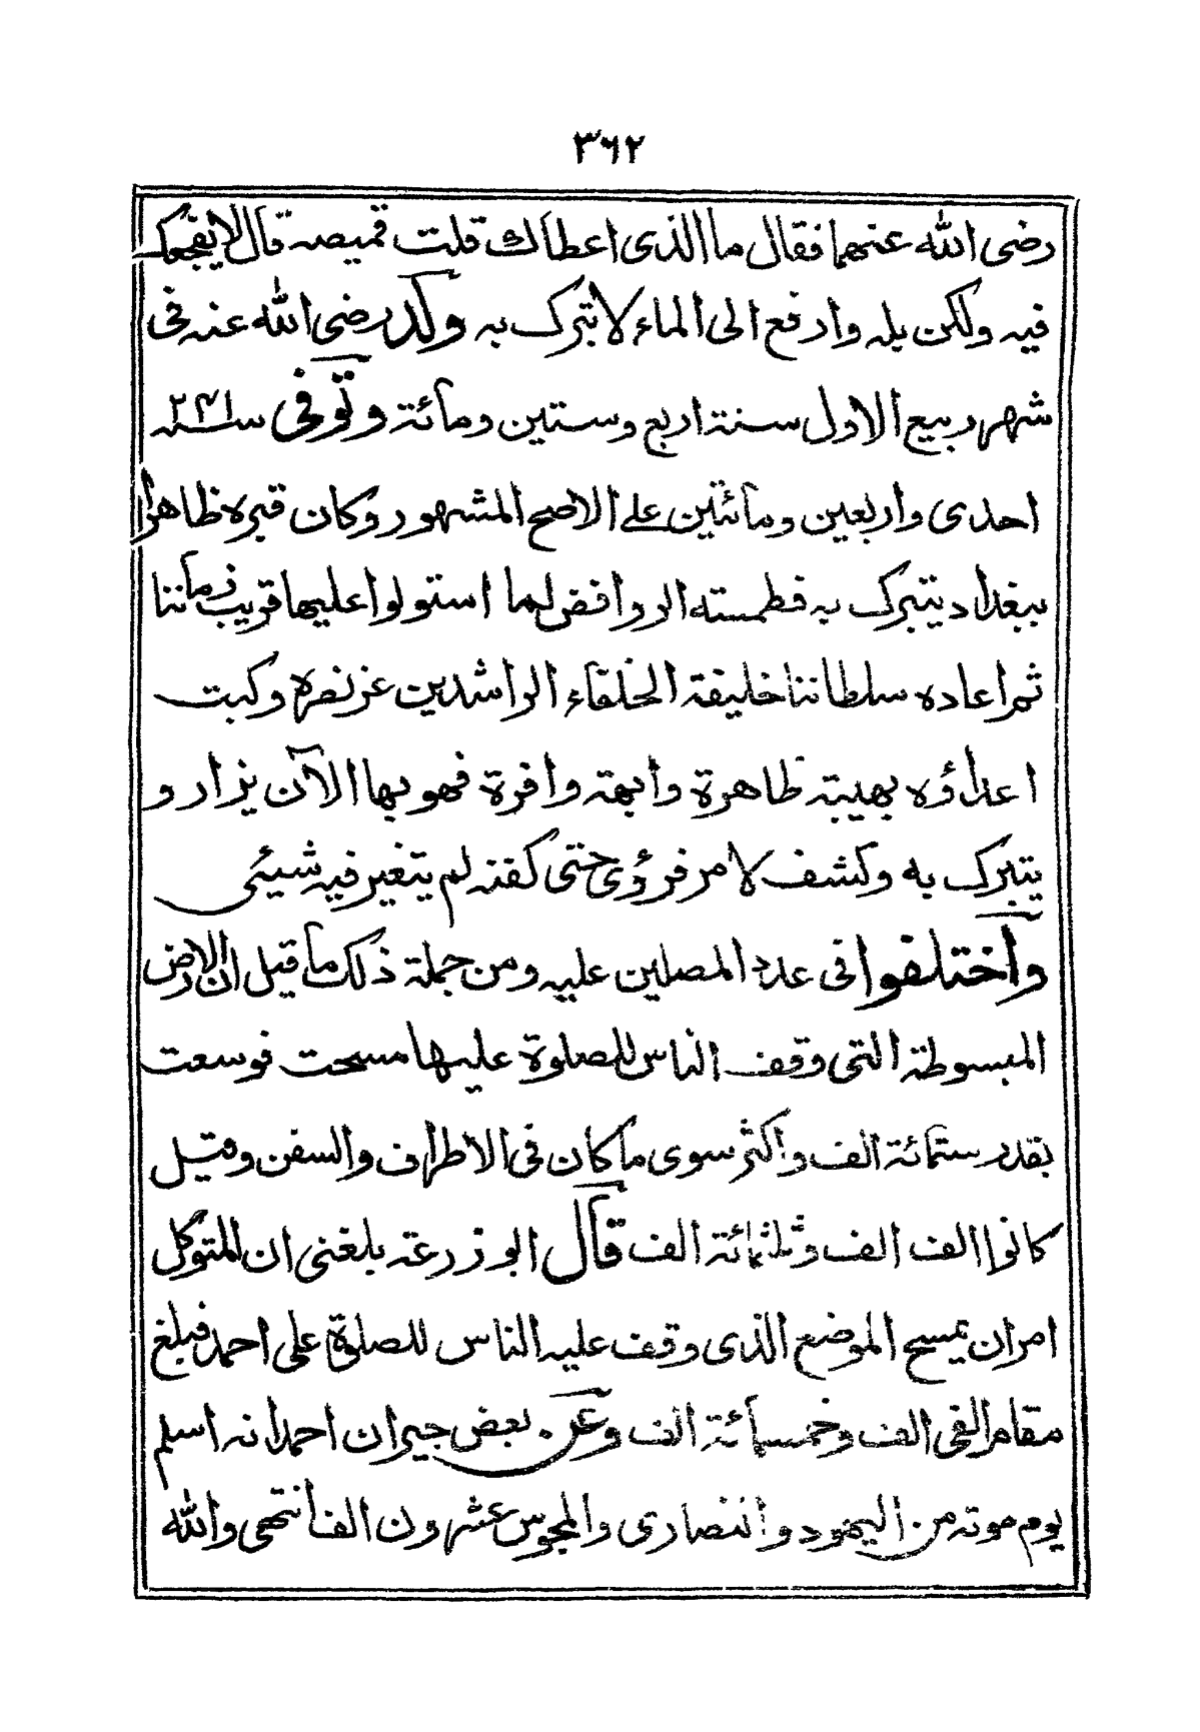 ٣٦٢
رضى الله عنهما فقال ما الذى اعطاك قلت قميصه قال لا يفجعك
فيه ولكن بله وارفع الى الماء لا تبرك به وُلد رضى الله عنه فى
شهر ربيع الاول سنة اربع وستين ومائة وتوفى سنة ٢٤١
احدى واربعين ومائتين على الاصح المشهور وكان قبره ظاهرا
ببغداد يتبرك به فطمسته الروافض لما استولوا عليها قريب زماننا
ثم اعاده سلطاننا خليفة الخلفاء الراشدين عز نصره وكبت
اعداؤه بهيبة ظاهرة وابهة وافرة فهو بها الآن يزار و
يتبرك به وكشف لامر فرؤى حتى كفنه لم يتغير فيه شيئى
واختلفوا فى عدد المصلين عليه ومن جملة ذلك ما قيل ان الارض
المبسوطة التى وقف الناس للصلوة عليها مسحت فوسعت
بقدر ستمائة الف واكثر سوى ما كان فى الاطراف والسفن وقيل
كانوا الف الف وثلثمائة الف قال ابو زرعة بلغنى ان المتوكل
امر ان يمسح الموضع الذى وقف عليه الناس للصلوة على احمد فبلغ
مقام الفى الف وخمسمائة الف وعن بعض جيران احمد انه اسلم
يوم موته من اليهود والنصارى والمجوس عشرون الفا انتهى والله